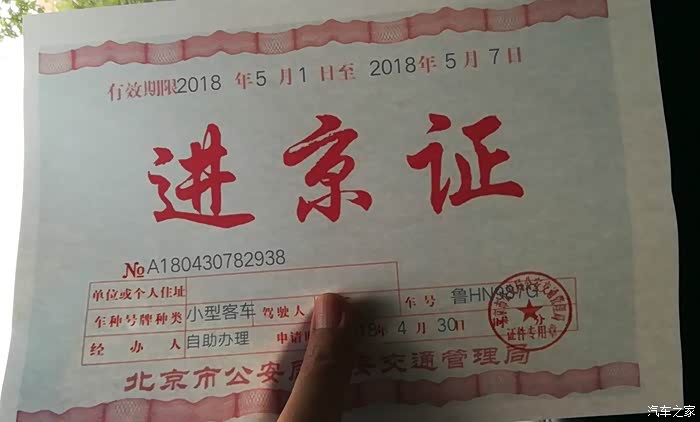 有效期限2018 年5 月1 日至 2018年5 月7 日
进京证
№A180430782938
单位或个人住址
车种号牌种类 小型客车 驾驶人 车号
经办人 自助办理 申请 18年 4 月 30日
证件专用章
北京市公安 交通管理局
汽车之家